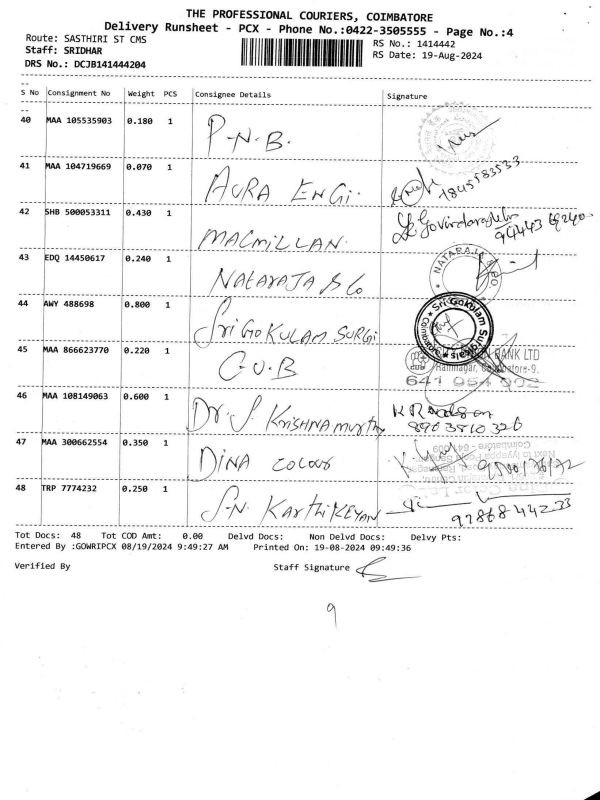 THE PROFESSIONAL COURIERS, COIMBATORE
Delivery Runsheet - PCX - Phone No.:0422-3505555 - Page No.:4
Route: SASTHIRI ST CMS RS No.: 1414442
Staff: SRIDHAR RS Date: 19-Aug-2024
DRS No.: DCJB141444204
S No Consignment No Weight PCS Consignee Details Signature
40 MAA 105535903 0.180 1 P.N.B.
41 MAA 104719669 0.070 1 AURA ENGI. 1845583533
42 SHB 500053311 0.430 1 MACMILLAN. Govindaraghulu
94443 69240
43 EDQ 14450617 0.240 1 NATARAJA & Co NATARAJ
44 AWY 488698 0.800 1 Sri GOKULAM SURGI Sri Gokulam Surgicals Coimbatore
45 MAA 866623770 0.220 1 C.U.B BANK LTD
Ramnagar, Coimbatore-9.
641 954 002
46 MAA 108149063 0.600 1 Dr. S KRISHNAMURTHY
8903810326
47 MAA 300662554 0.350 1 DINA COLOUR
48 TRP 7774232 0.250 1 S.N. KARTHIKEYAN
9786844233
Tot Docs: 48 Tot COD Amt: 0.00 Delvd Docs: Non Delvd Docs: Delvy Pts:
Entered By :GOWRIPCX 08/19/2024 9:49:27 AM Printed On: 19-08-2024 09:49:36
Verified By Staff Signature
9